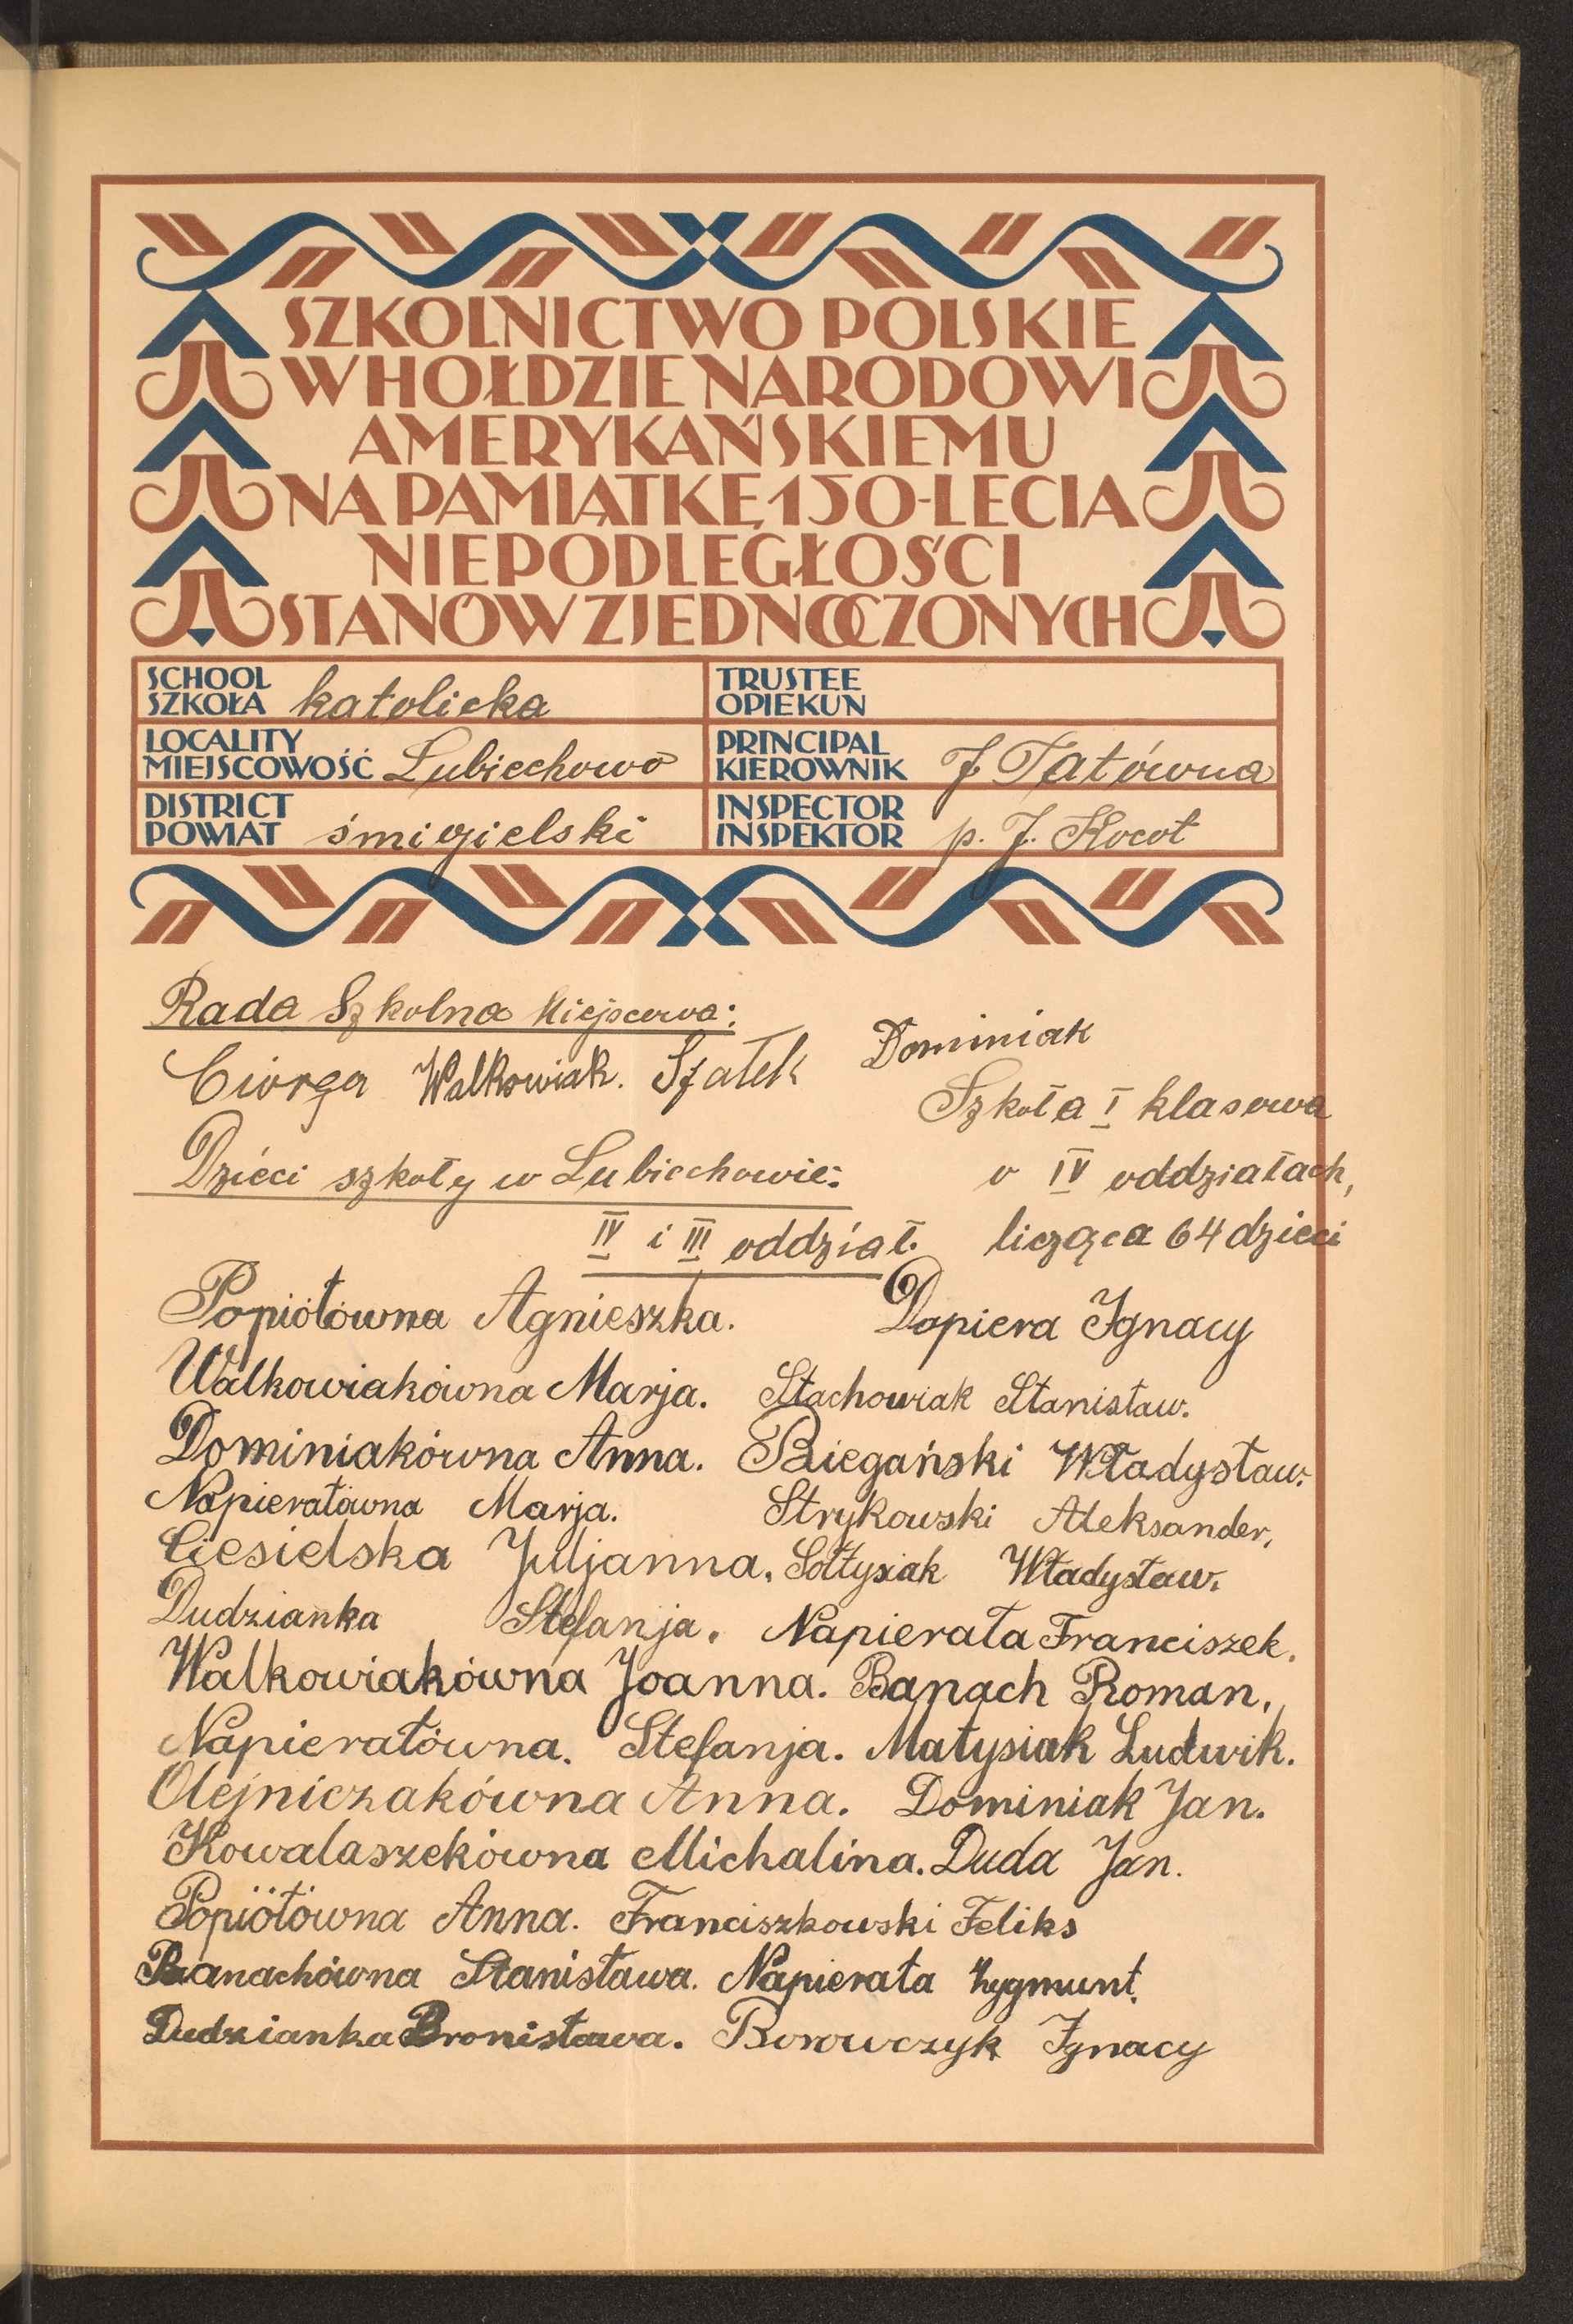 SZKOLNICTWO POLSKIE
W HOŁDZIE NARODOWI
AMERYKAŃSKIEMU
NA PAMIĄTKĘ 150-LECIA
NIEPODLEGŁOŚCI
STANÓW ZJEDNOCZONYCH
SCHOOL
SZKOŁA katolicka
TRUSTEE
OPIEKUN
LOCALITY
MIEJSCOWOŚĆ Lubiechowo
PRINCIPAL
KIEROWNIK J. Tatówna
DISTRICT
POWIAT śmigielski
INSPECTOR
INSPEKTOR p. J. Kocot
Rada Szkolna Miejscowa:
Ciorga Walkowiak. Szałek Dominiak
Szkoła I klasowa
Dzieci szkoły w Lubiechowie: o IV oddziałach,
IV i III oddział. licząca 64 dzieci
Popiołówna Agnieszka. Dopiera Ignacy
Walkowiakówna Marja. Stachowiak Stanisław.
Dominiakówna Anna. Biegański Władysław.
Napierałówna Marja. Strykowski Aleksander,
Ciesielska Juljanna. Sołtysiak Władysław.
Dudzianka Stefanja. Napierała Franciszek.
Walkowiakówna Joanna. Banach Roman.
Napierałówna. Stefanja. Matysiak Ludwik.
Olejniczakówna Anna. Dominiak Jan.
Kowalaszekówna Michalina. Duda Jan.
Popiołówna Anna. Franciszkowski Feliks
Banachówna Stanisława. Napierała Zygmunt.
Dudzianka Bronisława. Borowczyk Ignacy